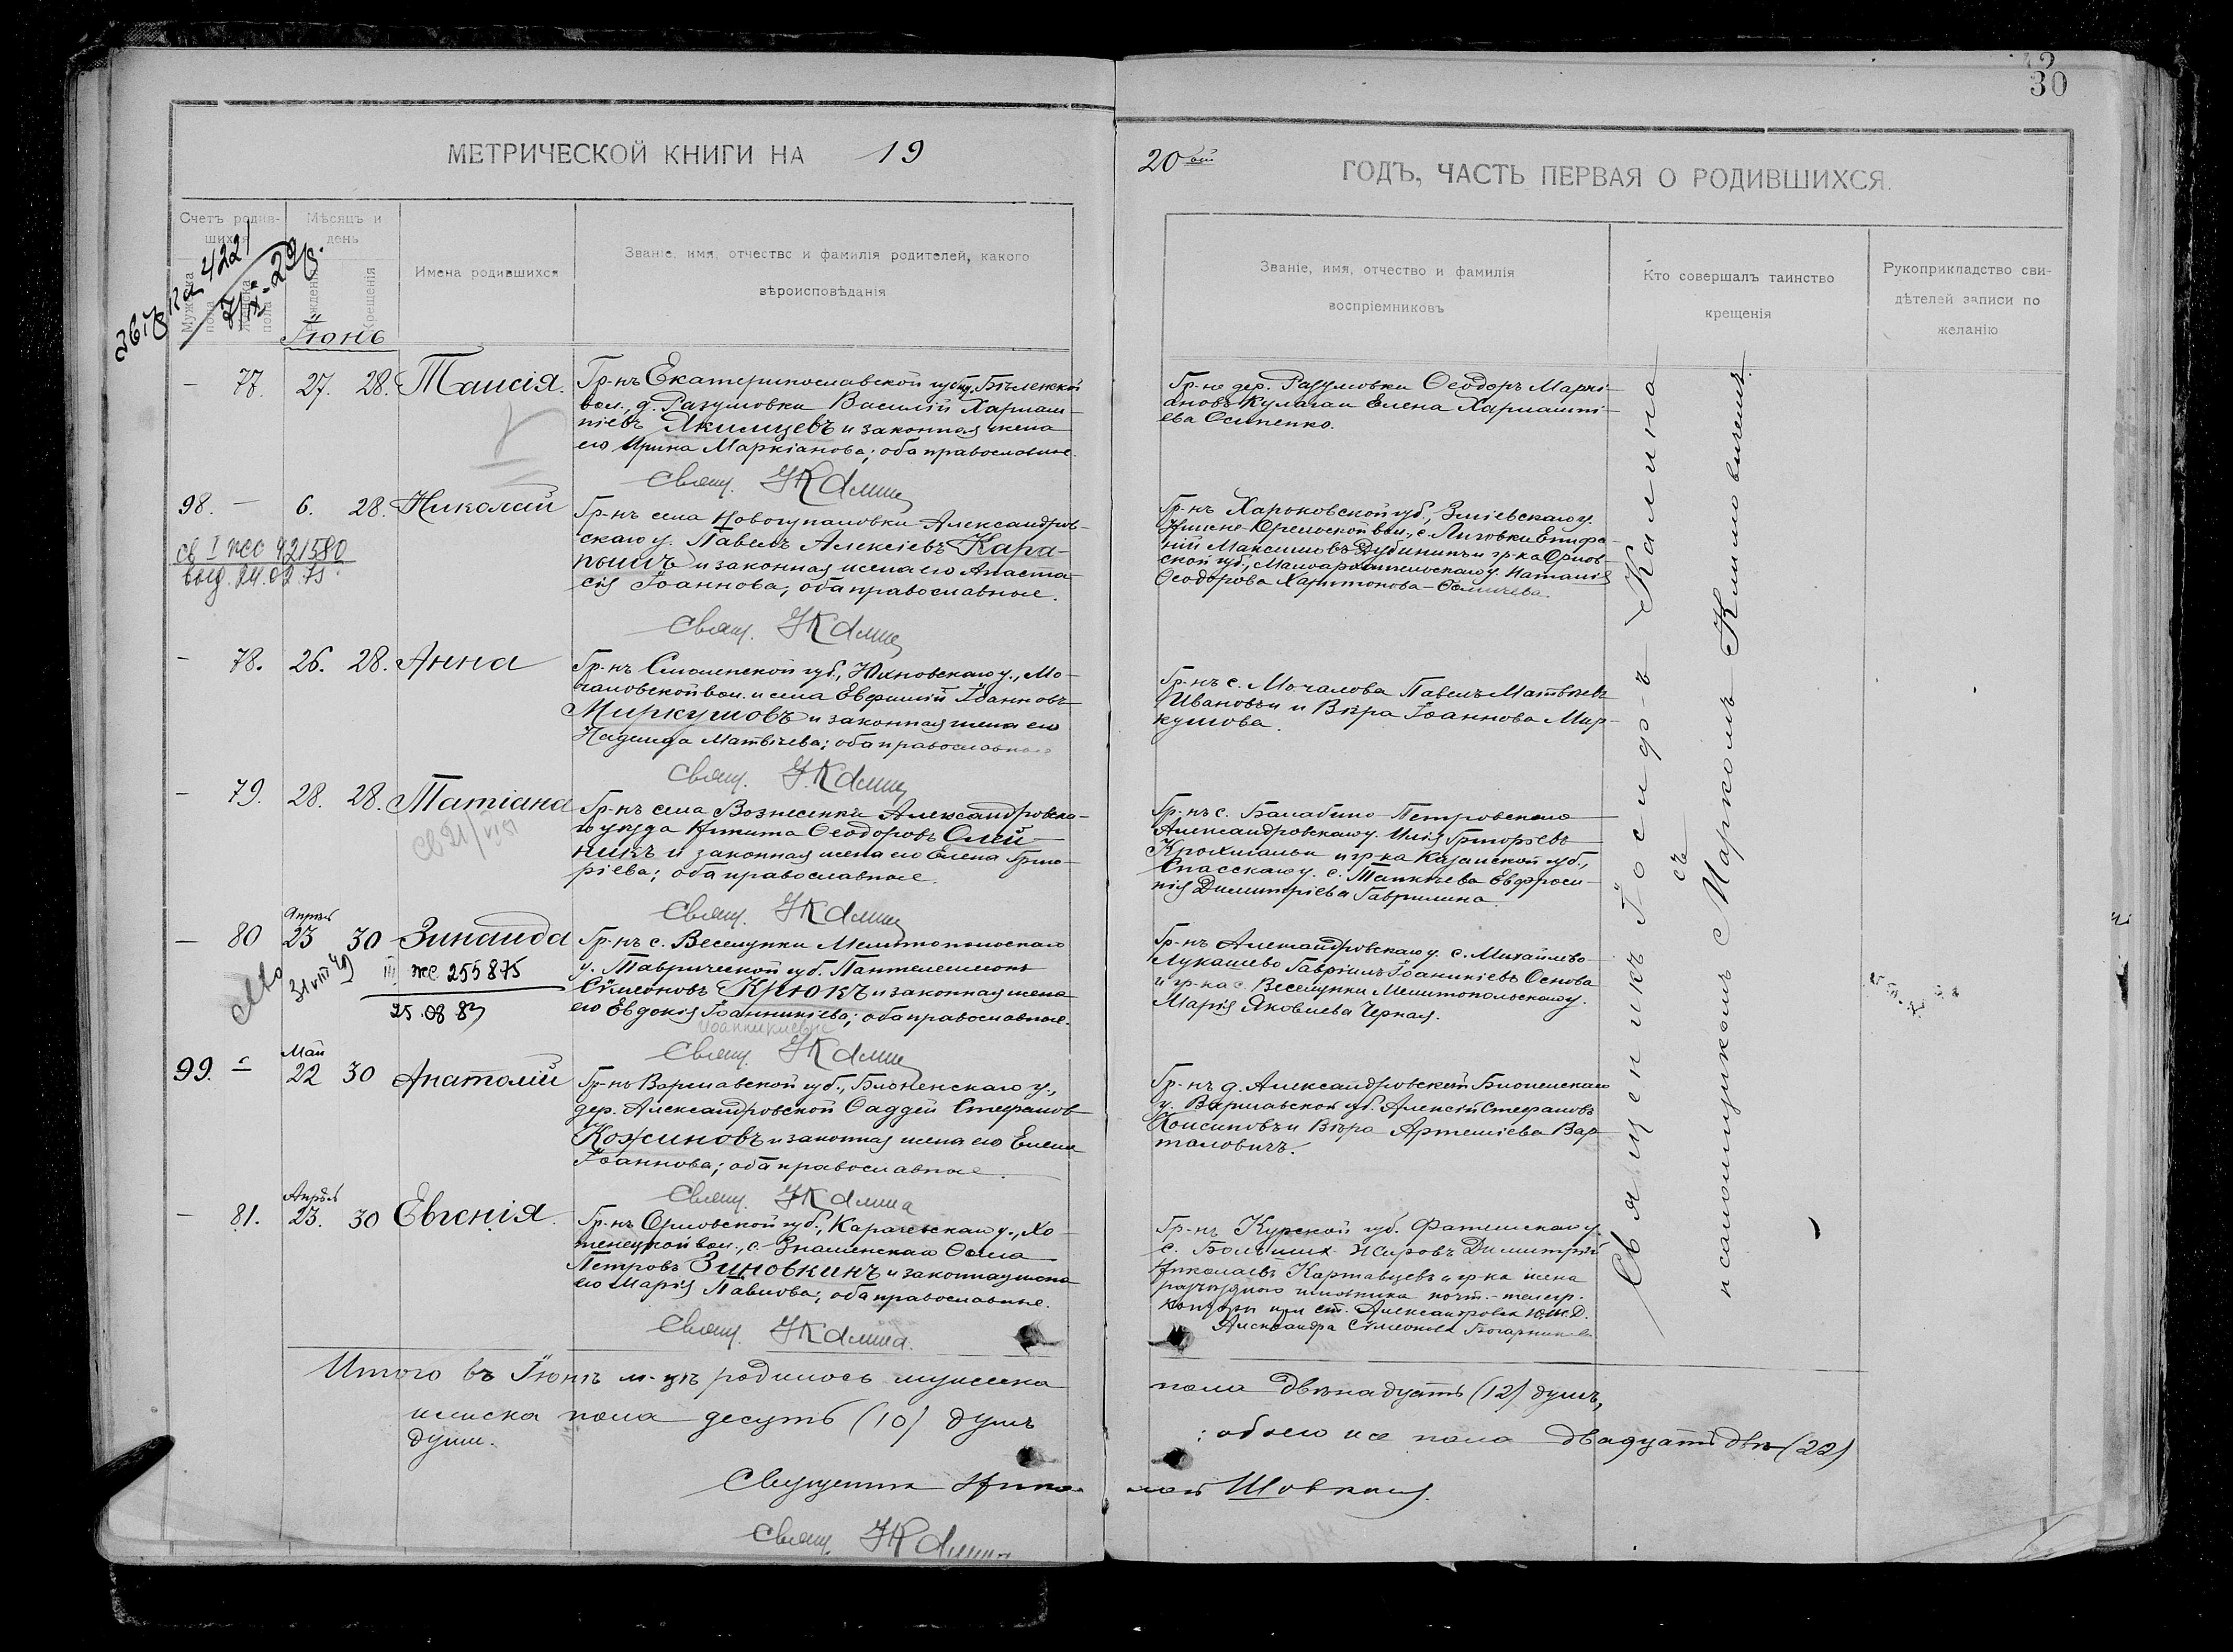 30
МЕТРИЧЕСКОЙ КНИГИ НА 19
20ый ГОДЪ, ЧАСТЬ ПЕРВАЯ О РОДИВШИХСЯ.
Счетъ родив-
шихся
Мужеска пола
Женска пола
Мѣсяцъ и
день
Рожденія
Крещенія
Имена родившихся
Званіе, имя, отчество и фамилія родителей, какого
вѣроисповѣданія
Званіе, имя, отчество и фамилія
воспріемниковъ
Кто совершалъ таинство
крещенія
Рукоприкладство сви-
дѣтелей записи по
желанію
Іюнь
— 77. 27. 28. Таисія.
Гр-нъ Екатеринославской губ., Бѣленской
вол., д. Разумовки Василій Харлам-
піевъ Якимцевъ и законная жена
его Ирина Маркіанова; оба православные.
Свящ. І Калина
Гр-не дер. Разумовки Ѳеодоръ Маркі-
ановъ Кулага и Елена Харлампі-
ева Осипенко.
98. — 6. 28. Николай
св I ЖС 421580
выд. 24.02.75
Гр-нъ села Новогупаловки Александров-
скаго у. Павелъ Алексіевъ Кара-
пышъ и законная жена его Анаста-
сія Іоаннова, оба православные.
Свящ. І Калина
Гр-нъ Харьковской губ., Зміевскаго у.
Нижне-Орельской вол., с. Лиговки Епифа-
ній Максимовъ Дубининъ и гр-ка Орлов-
ской губ., Малоархангельскаго у. Наталія
Ѳеодорова Харитонова-
— 78. 26. 28. Анна
Гр-нъ Смоленской губ., Юхновскаго у., Мо-
чаловской вол. и села Евфимій Іоанновъ
Миркушовъ и законная жена его
Надежда Матвѣева; оба православные
Свящ. І Калина
Гр-нъ с. Мочалова Павелъ Матвѣевъ
Ивановъ и Вѣра Іоаннова Мир-
кушова.
— 79. 28. 28. Татіана
Гр-нъ села Вознесенки Александровска-
го уѣзда Никита Ѳеодоровъ Олей-
никъ и законная жена его Елена Григо-
ріева; оба православные.
Свящ. І Калина
Гр-нъ с. Балабино-Петровскаго
Александровскаго у. Илія Григорьевъ
и гр-ка Казанской губ.,
Спасскаго у. с. Евфроси-
нія Димитріева Гаврилина.
Апрѣль
— 80 23 30 Зинаида
III ЖС 255875
25.08.83
Гр-нъ с. Веселянки Мелитопольскаго
у. Таврической губ. Пантелеимонъ
Сѵмеоновъ Крюкъ и законная жена
его Евдокія Іоанникіева; оба православные.
Иоанникиевна
Свящ. І Калина
Гр-нъ Александровскаго у. с. Михайлово-
Лукашево Гавріилъ Іоанникіевъ Основа
и гр-ка с. Веселянки Мелитопольскаго у.
Марія Яковлева Черная.
Май
99. — 22 30 Анатолій
Гр-нъ Варшавской губ., Блоненскаго у.,
дер. Александровской Ѳаддей Стефановъ
Кожиновъ и законная жена его Елена
Іоаннова; оба православные.
Свящ. І Калина
Гр-нъ д. Александровской Блоненскаго
у. Варшавской губ. Алексій Стефановъ
и Вѣра Артеміева Вар-
таловичъ.
Апрѣль
— 81. 23. 30 Евгенія.
Гр-нъ Орловской губ., Карачевскаго у., Хо-
тенецкой вол., с. Знаменскаго Ѳома
Петровъ Зиновкинъ и законная жена
его Марія Павлова; оба православные.
Свящ. І Калина.
Гр-нъ Курской губ. Фатежскаго у.
с. Большихъ Жировъ Димитрій
Николаевъ Картавцевъ и гр-ка жена
разъѣзднаго чиновника почт.-телегр.
конторы при ст. Александровск Ю.ж.д.
Александра Сѵмеонова
Священникъ Іосифъ Калина
съ
псаломщикомъ Маркомъ Климовичемъ.
Итого въ Іюнѣ м-цѣ родилось мужеска пола двѣнадцать (12) душъ,
женска пола десять (10) душъ; обоего же пола двадцать двѣ (22)
души.
Николай Шовкань.
Свящ. І Калина